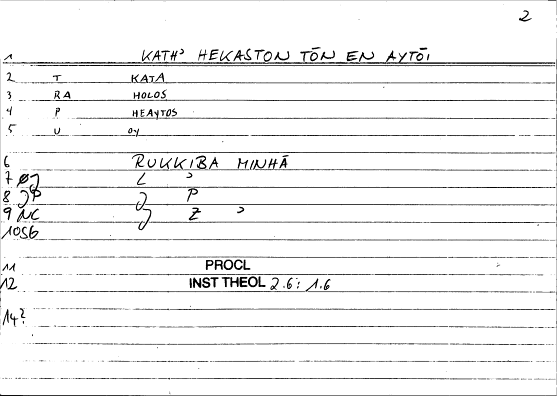 2
1 KATH' HEKASTON TŌN EN AYTŌI
2 T KATA
3 RA HOLOS
4 P HEAYTOS
5 U OY
6 RUKKIBA MINHĀ
7 L ʾ
8 P
9 NC Z ʾ
10 SG
11 PROCL
12 INST THEOL 2.6; 1.6
14?